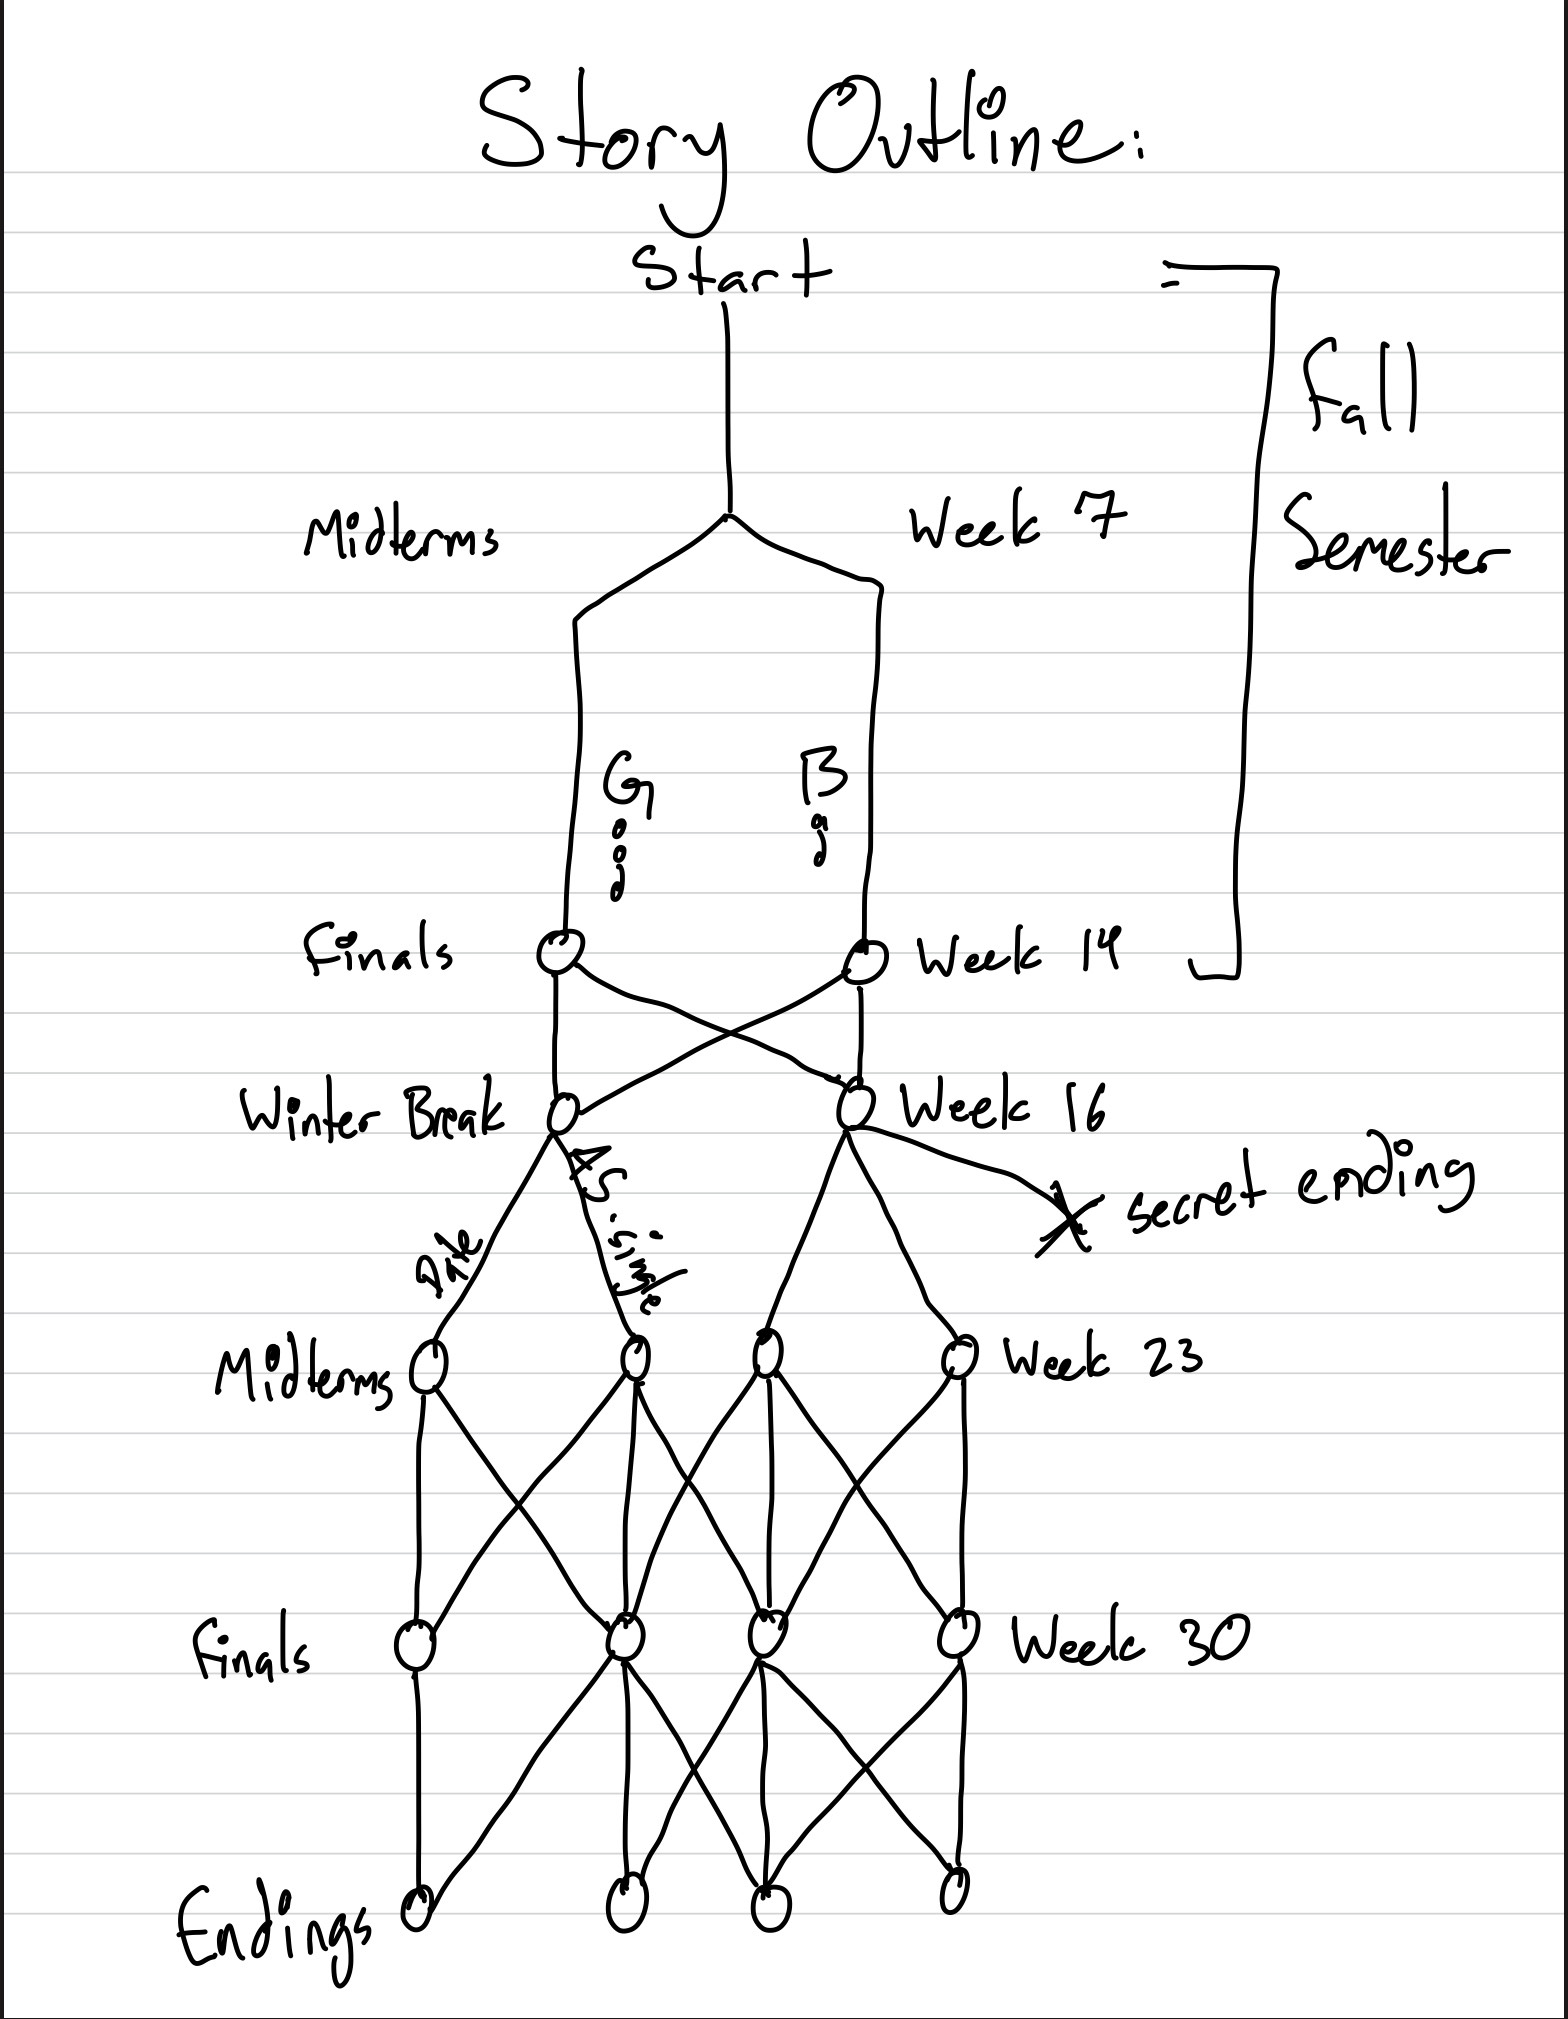 Story Outline:
Start
Fall
Semester
Midterms
Week 7
Good
Bad
Finals
Week 14
Winter Break
Week 16
secret ending
Date
Midterms
Week 23
Finals
Week 30
Endings